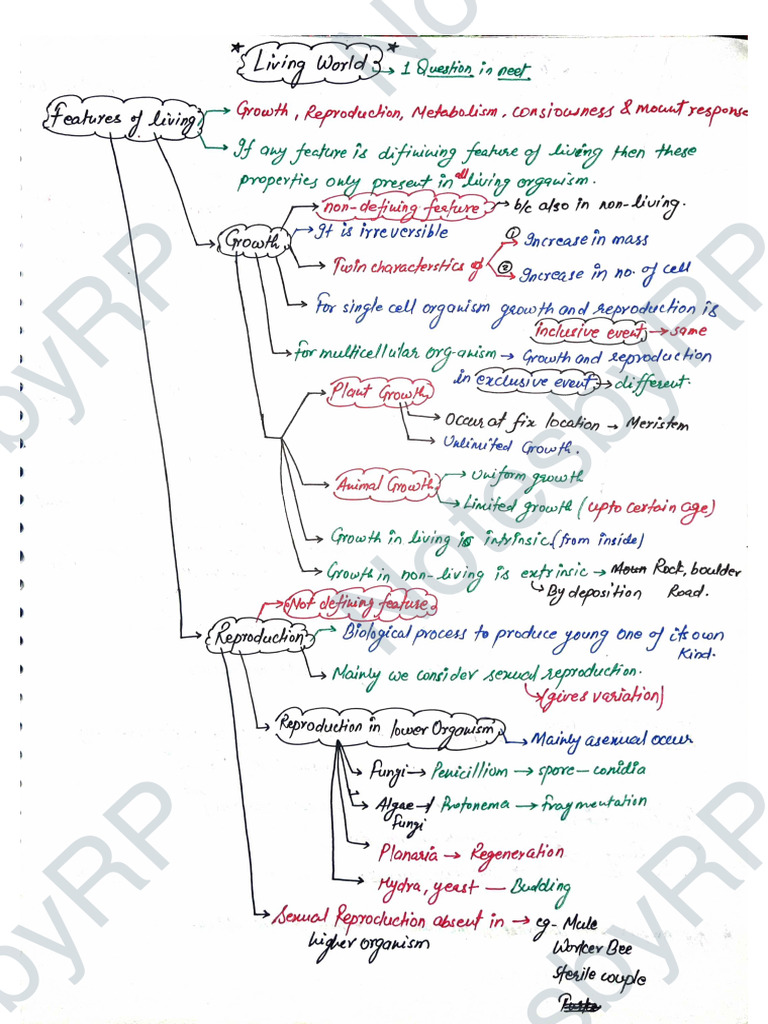 * Living World *
→ 1 Question in neet
Features of living
→ Growth, Reproduction, Metabolism, consiowness & mount response
→ If any feature is difinining feature of living then these
properties only present in all living organism.
Growth
non-defining feature → b/c also in non-living.
→ It is irreversible
→ Twin characterstics of
① Increase in mass
② Increase in no. of cell
→ For single cell organism growth and reproduction is
inclusive event → same
→ for multicellular org-anism → Growth and reproduction
in exclusive event → different.
Plant Growth
→ Occur at fix location → Meristem
→ Unlimited Growth.
Animal Growth
→ Uniform growth
→ Limited growth (upto certain age)
→ Growth in living is intrinsic (from inside)
→ Growth in non-living is extrinsic → Rock, boulder
→ By deposition Road.
Not defining feature
Reproduction
→ Biological process to produce young one of its own
Kind.
→ Mainly we consider sexual reproduction.
(gives variation)
Reproduction in lower Organism
→ Mainly asexual occur
→ Fungi → Penicillium → spore – conidia
→ Algae → Protonema → fragmentation
fungi
→ Planaria → Regeneration
→ Hydra, yeast — Budding
→ Sexual Reproduction absent in → eg- Mule
higher organism
Worker Bee
Sterile couple
NotesbyRP
NotesbyRP
NotesbyRP
NotesbyRP